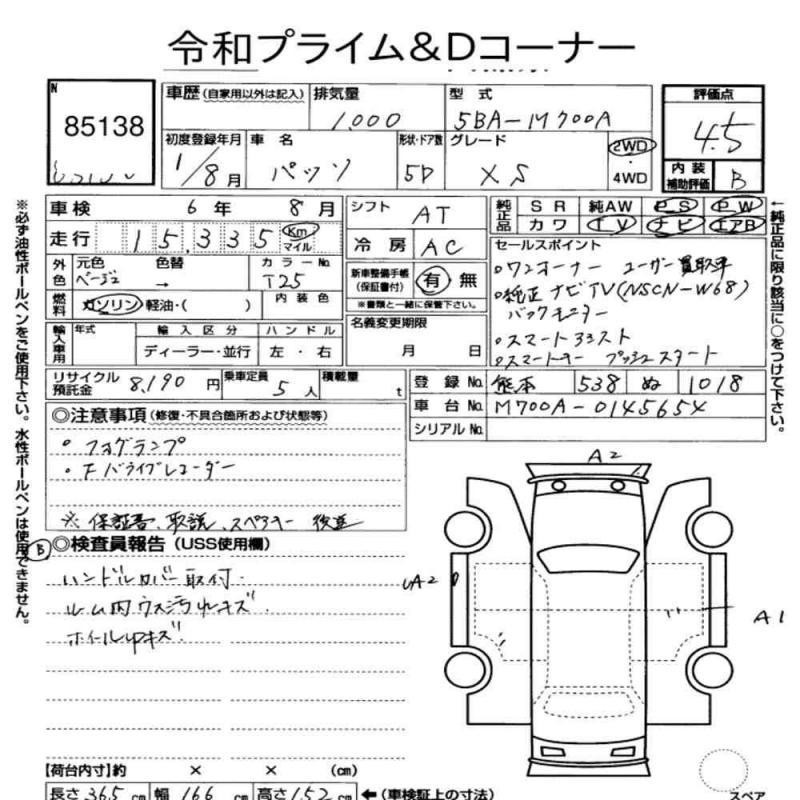 令和プライム&Dコーナー
N
85138
車歴 (自家用以外は記入)
排気量
1,000
型式
5BA-M700A
評価点
4.5
初度登録年月
1/8月
車名
パッソ
形状・ドア数
5D
グレード
XS
2WD
4WD
内装補助評価
B
車検 6年 8月
シフト
AT
純正品
SR 純AW PS PW
カワ TV ナビ エアB
走行 15,335 Km マイル
冷房
AC
セールスポイント
外色
元色
ベージュ
色替
→
カラーNo.
T25
新車整備手帳(保証書付)
有 無
※書類と一緒に保管下さい。
・ワンオーナー ユーザー買取車
・純正ナビTV(NSCN-W68)
バックモニター
・スマートアシスト
・スマートキー プッシュスタート
燃料
ガソリン 軽油・( )
内装色
輸入車用
年式
輸入区分
ディーラー・並行
ハンドル
左・右
名義変更期限
月 日
リサイクル預託金 8,190円
乗車定員 5人
積載量 t
登録No. 熊本 538 ぬ 1018
車台No. M700A-0145654
シリアルNo.
◎注意事項 (修復・不具合箇所および状態等)
・フォグランプ
・Fドライブレコーダー
※保証書、取説、スペアキー 後送
B
◎検査員報告 (USS使用欄)
ハンドルカバー取付.
ルーム内ウス汚れキズ.
ホイール中キズ.
A2
A2
A1
スペア
【荷台内寸】約 × × (cm)
長さ 365 cm 幅 166 cm 高さ 152 cm ←(車検証上の寸法)
※必ず油性ボールペンをご使用下さい。水性ボールペンは使用できません。
←純正品に限り該当に○をつけて下さい。